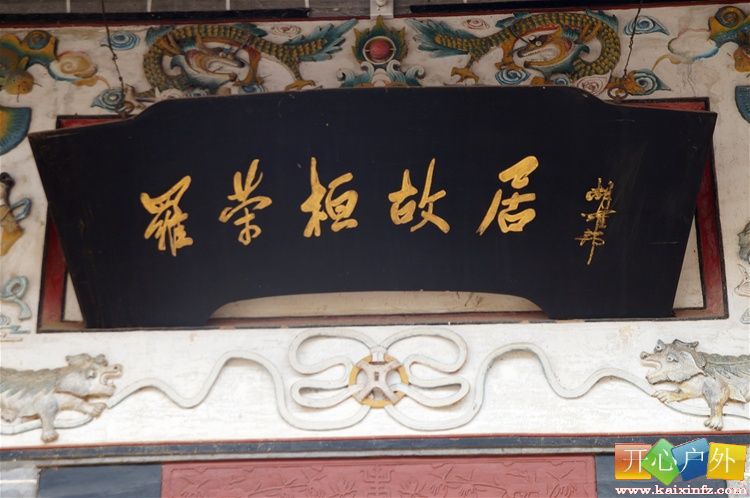 羅荣桓故居
胡耀邦
开心户外
www.kaixinfz.com